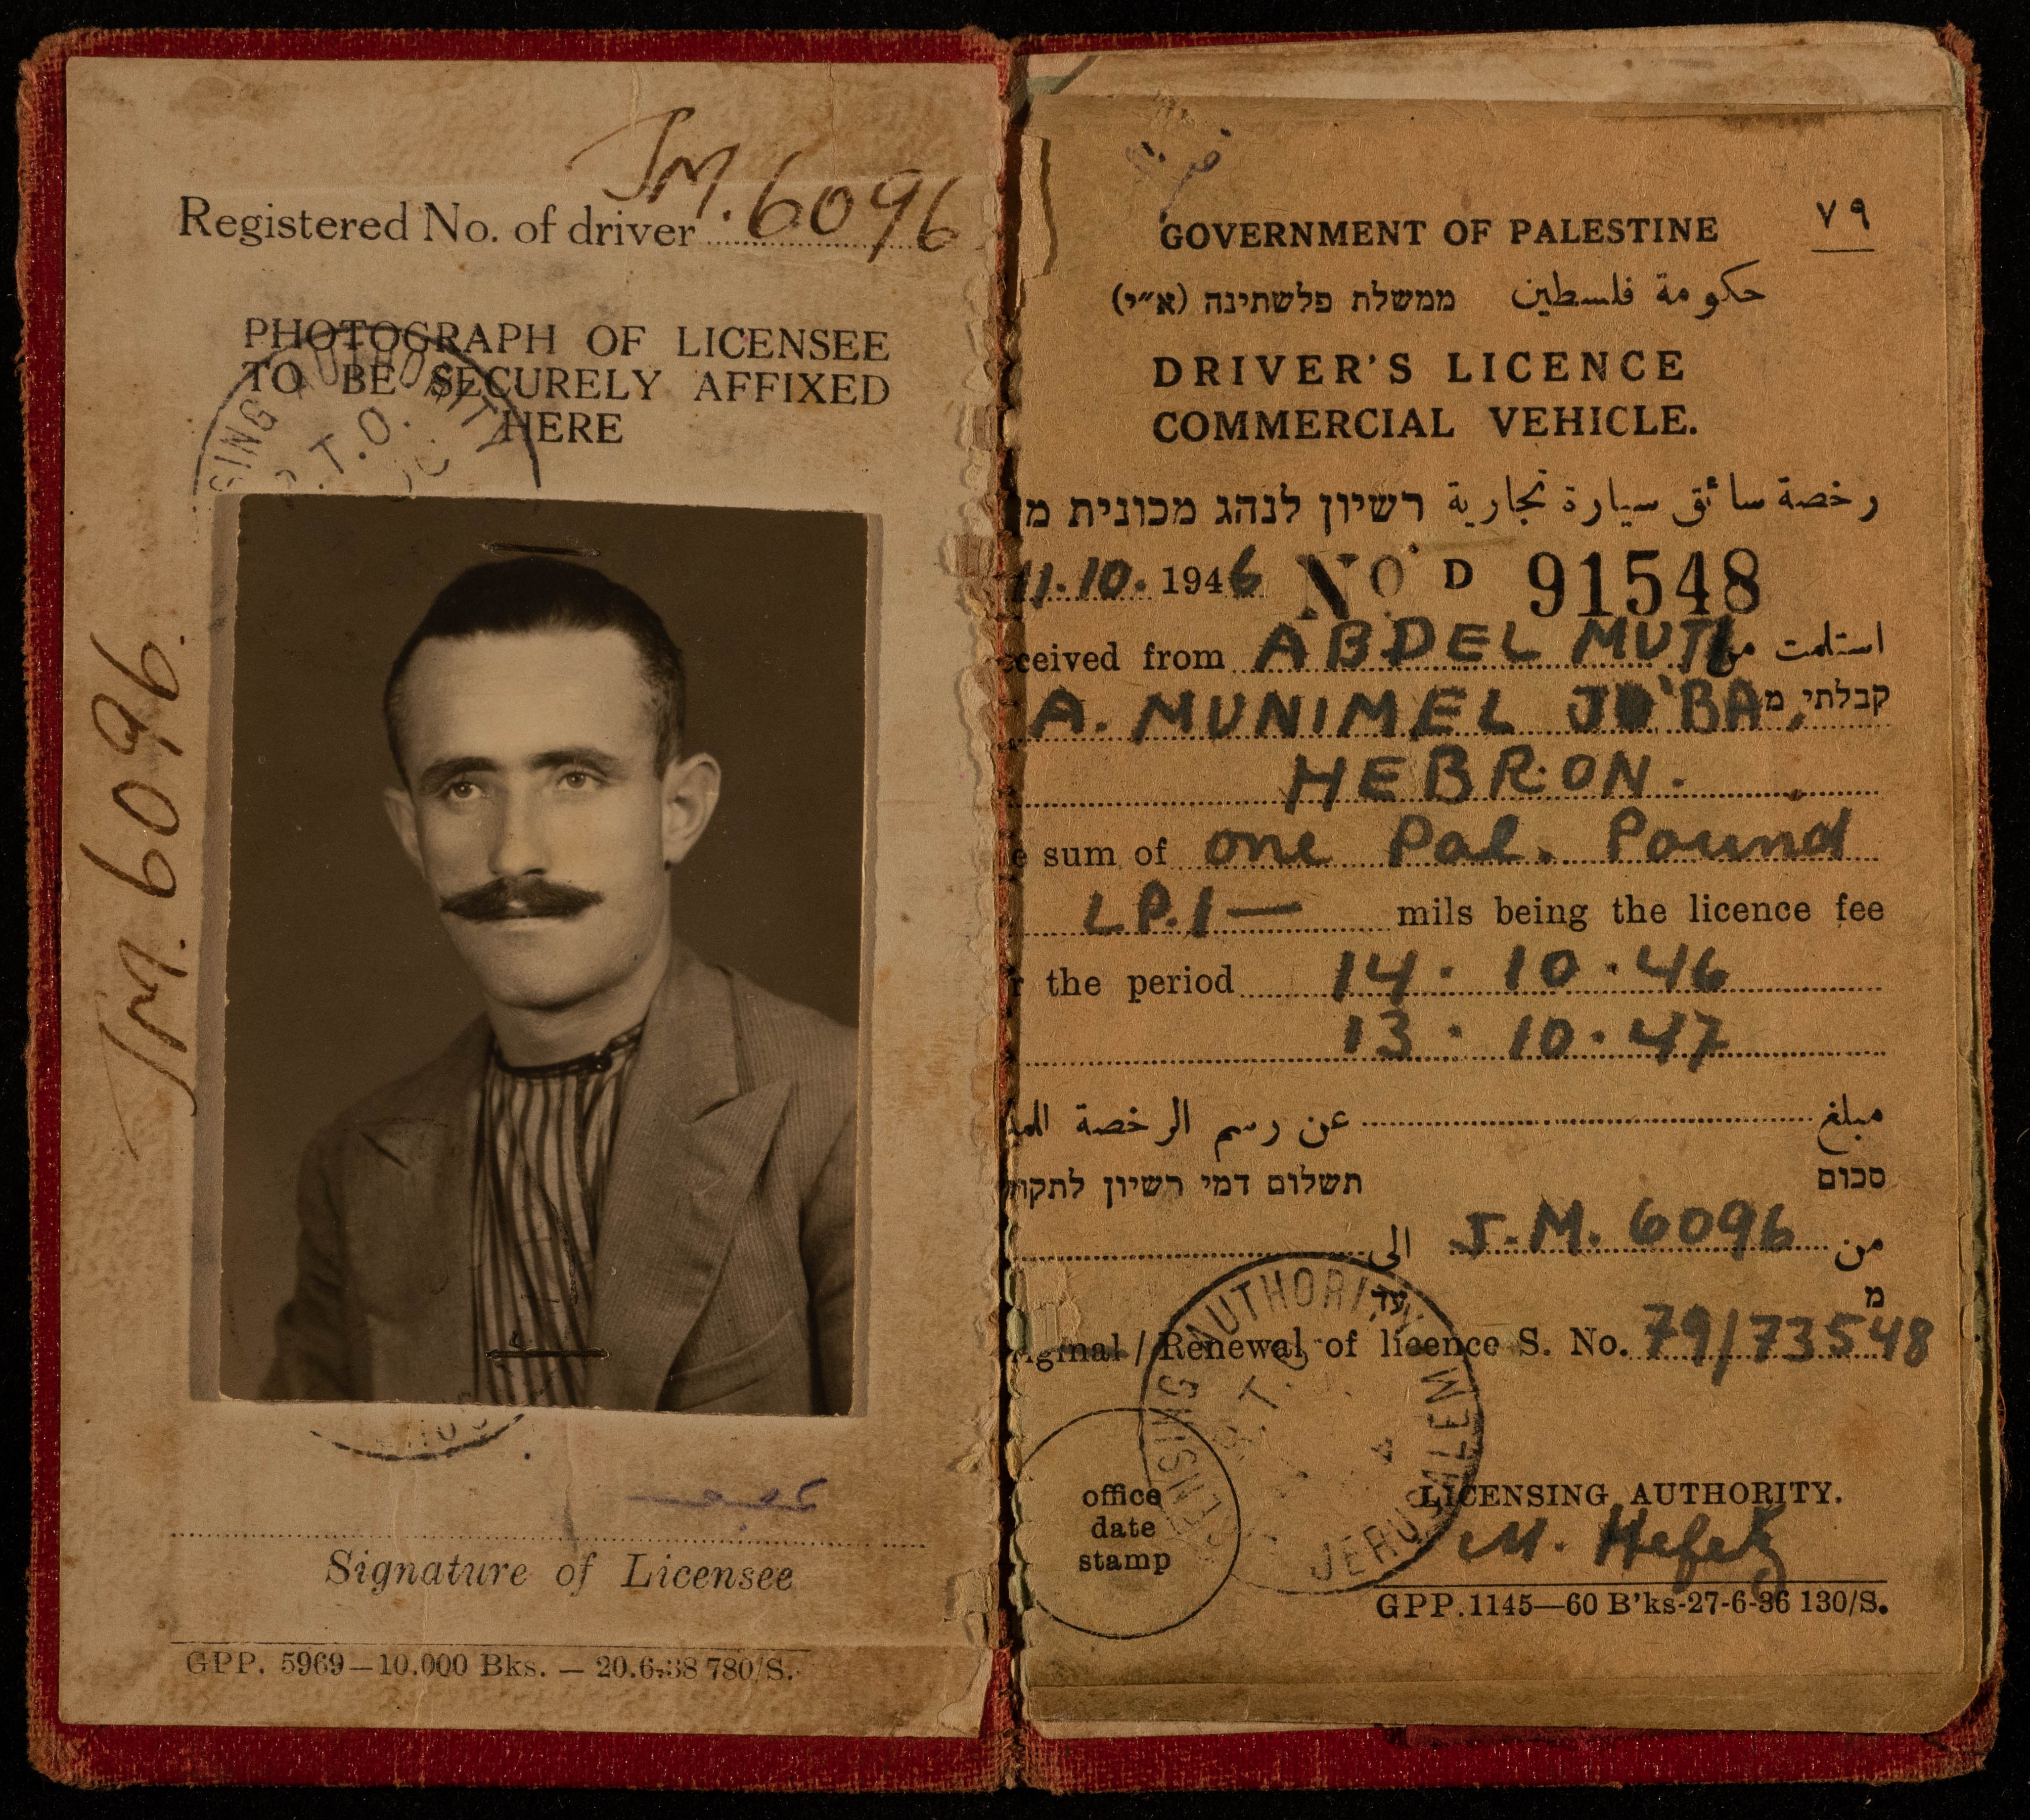 JM. 6096
Registered No. of driver
PHOTOGRAPH OF LICENSEE
TO BE SECURELY AFFIXED
HERE
SING AUTHORITY
R.T.O.
JM. 6096.
Signature of Licensee
GPP. 5969—10.000 Bks. — 20.6.38 780/S.
٧٩
GOVERNMENT OF PALESTINE
حكومة فلسطين ממשלת פלשתינה (א״י)
DRIVER'S LICENCE
COMMERCIAL VEHICLE.
رخصة سائق سيارة تجارية רשיון לנהג מכונית מ
11.10. 1946 NO D 91548
ceived from ABDEL MUTI استلمت من
A. MUNIMEL JO'BA, קבלתי מ
HEBRON.
e sum of one Pal. Pound
LP.1— mils being the licence fee
r the period 14.10.46
13.10.47
مبلغ عن رسم الرخصة الم
סכום תשלום דמי רשיון לתקו
من J.M. 6096 الى
מ עד
iginal / Renewal of licence S. No. 79/73548
LICENSING AUTHORITY JERUSALEM
R.T.
office
date
stamp
LICENSING AUTHORITY.
M. Hefetz
GPP.1145—60 B'ks-27-6-36 130/S.